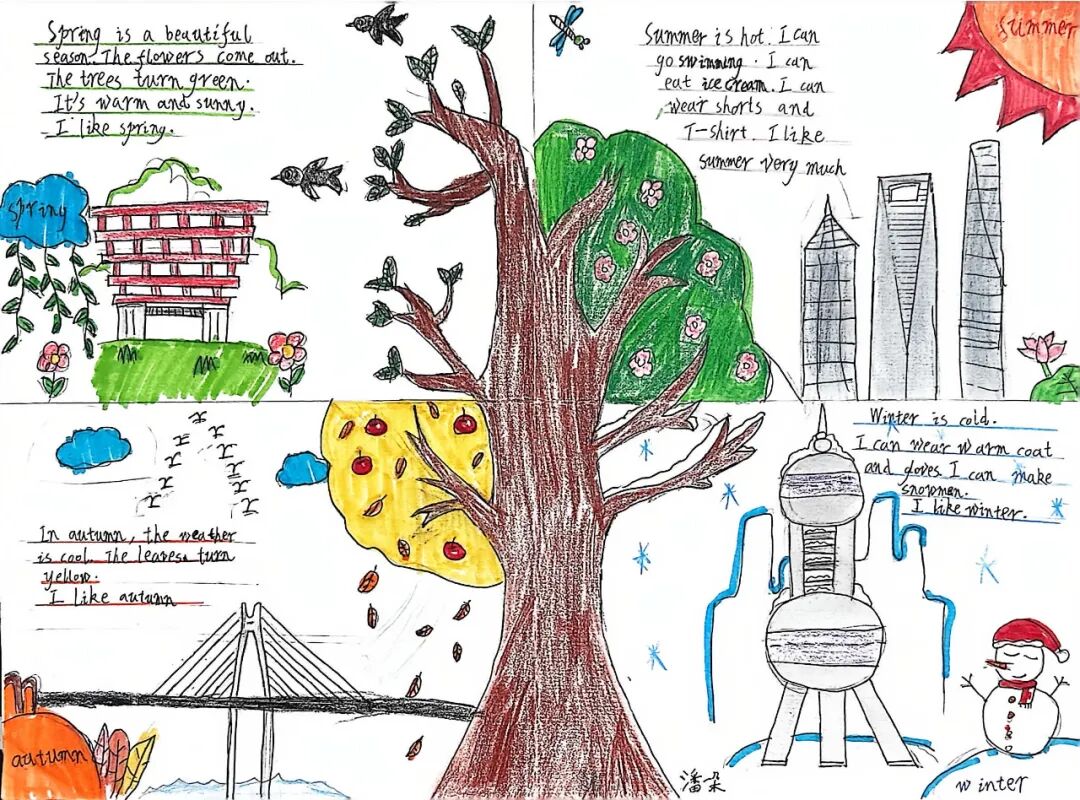 Spring is a beautiful
season. The flowers come out.
The trees turn green.
It's warm and sunny.
I like spring.
spring
Summer is hot. I can
go swimming. I can
eat ice cream. I can
wear shorts and
T-shirt. I like
summer very much
summer
In autumn, the weather
is cool. The leaves turn
yellow.
I like autumn
autumn
Winter is cold.
I can wear warm coat
and gloves. I can make
snowmen.
I like winter.
winter
潘朵